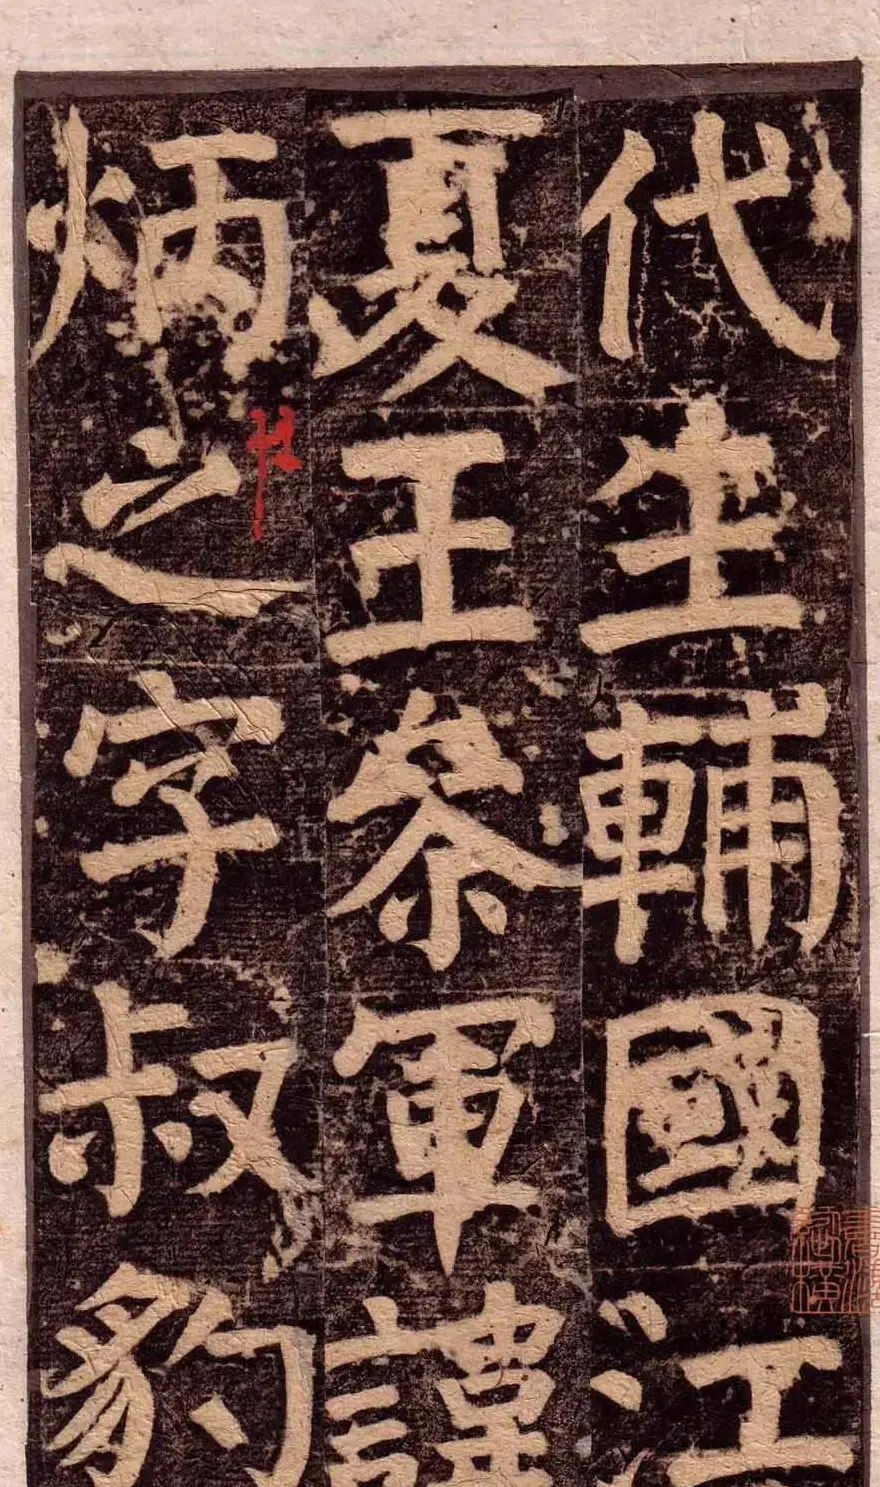 代生輔國江
夏王參軍諱
炳之字叔豹